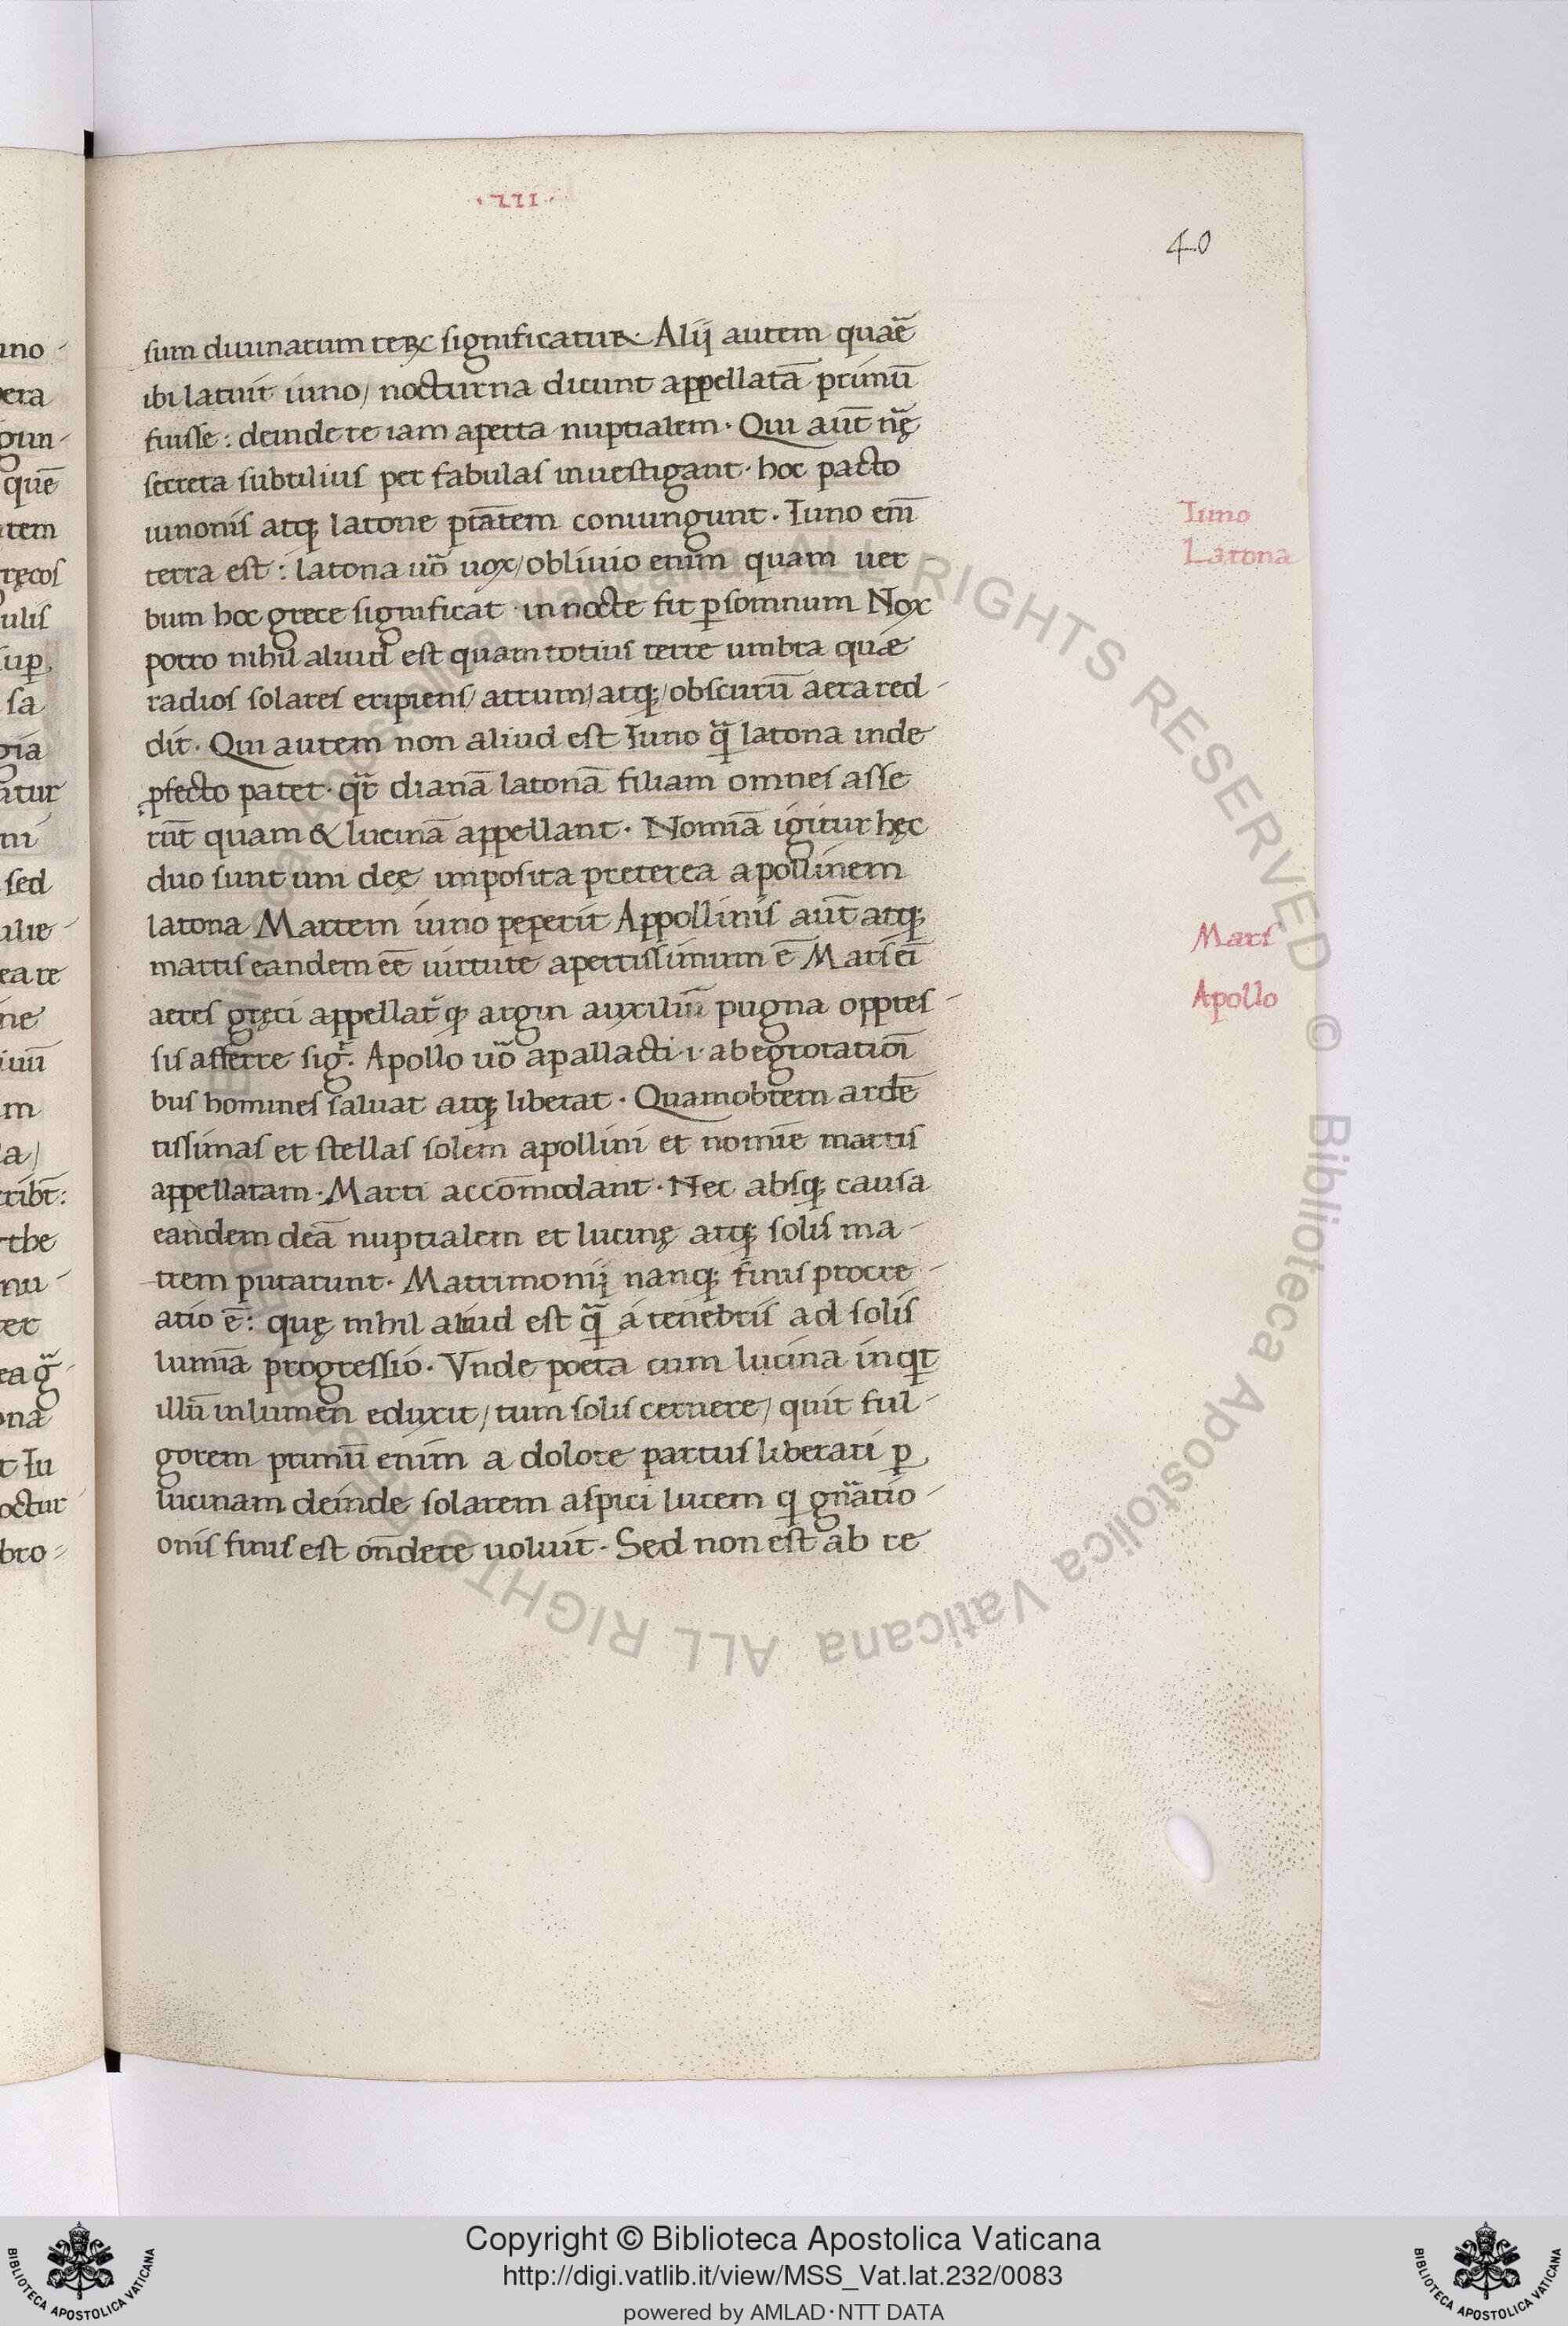 ·III·
40
sum diuinarum reꝝ significatur. Alij autem quãe
ibi latuit iuno/ nocturna dicunt appellatã primũ
fuisse: deinde re iam aperta nuptialem. Qui aut̃ nr̃ę
secreta subtilius per fabulas inuestigant. hoc pacto
iunonis atq; latone ptãtem coniungunt. Iuno em̃
terra est: latona uõ uox/ obliuio enim quam uer
bum hoc grece significat in nocte fit ꝑ somnum Nox
porro nihil aliud est quam totius terre umbra quæ
radios solares eripiens/ atrum/ atq;/ obscurũ aera red-
dit. Qui autem non aliud est Iuno q̃ latona inde
ꝓfecto patet. qr̃ dianã latonã filiam omnes asse
rũt quam & lucinã appellant. Nomĩa igitur hęc
duo sunt uni deę imposita preterea apollinem
latona Martem iuno peperit Appollinis aut̃ atq;
martis eandem eẽ uirtute apertissimum ẽ Mars eĩ
aeres gręci appellat̃ ꝙ argin auxiliũ pugna oppres-
sis afferre sig̃. Apollo uõ apallacti ·i· ab egrotatiõi
bus homines saluat atq; liberat. Quamobrem ardẽ
tissimas et stellas solem apollini et nomĩe martis
appellatam. Marti accõmodant. Nec absq; causa
eandem deã nuptialem et lucinę atq; solis ma-
trem putarunt. Matrimonij nanq; finis procre-
atio ẽ: quę nihil aliud est q̃ á tenebris ad solis
lumĩa progressio. Vnde poeta cum lucina inqt
illũ in lumen eduxit/ tum solis cernere/ quit ful-
gorem primũ enim a dolore partus liberati ꝑ
lucinam deinde solarem aspici lucem q gñatio-
onis finis est oñdere uoluit. Sed non est ab re
Iuno
Latona
Mars
Apollo
uno-
pera
gun-
quẽ
tem
ręcos
ulis
suꝑ
sa
gia
itur
ni
sed
ulie-
ea re
ne
iuũ
m
a/
cribt̃:
rthe
nu-
ter
ea g̃-
ona
t Iu
octur-
bro-
© Biblioteca Apostolica Vaticana ALL RIGHTS RESERVED © Biblioteca Apostolica Vaticana ALL RIGHTS RESERVED
Copyright © Biblioteca Apostolica Vaticana
http://digi.vatlib.it/view/MSS_Vat.lat.232/0083
powered by AMLAD·NTT DATA
BIBLIOTECA APOSTOLICA VATICANA
BIBLIOTECA APOSTOLICA VATICANA